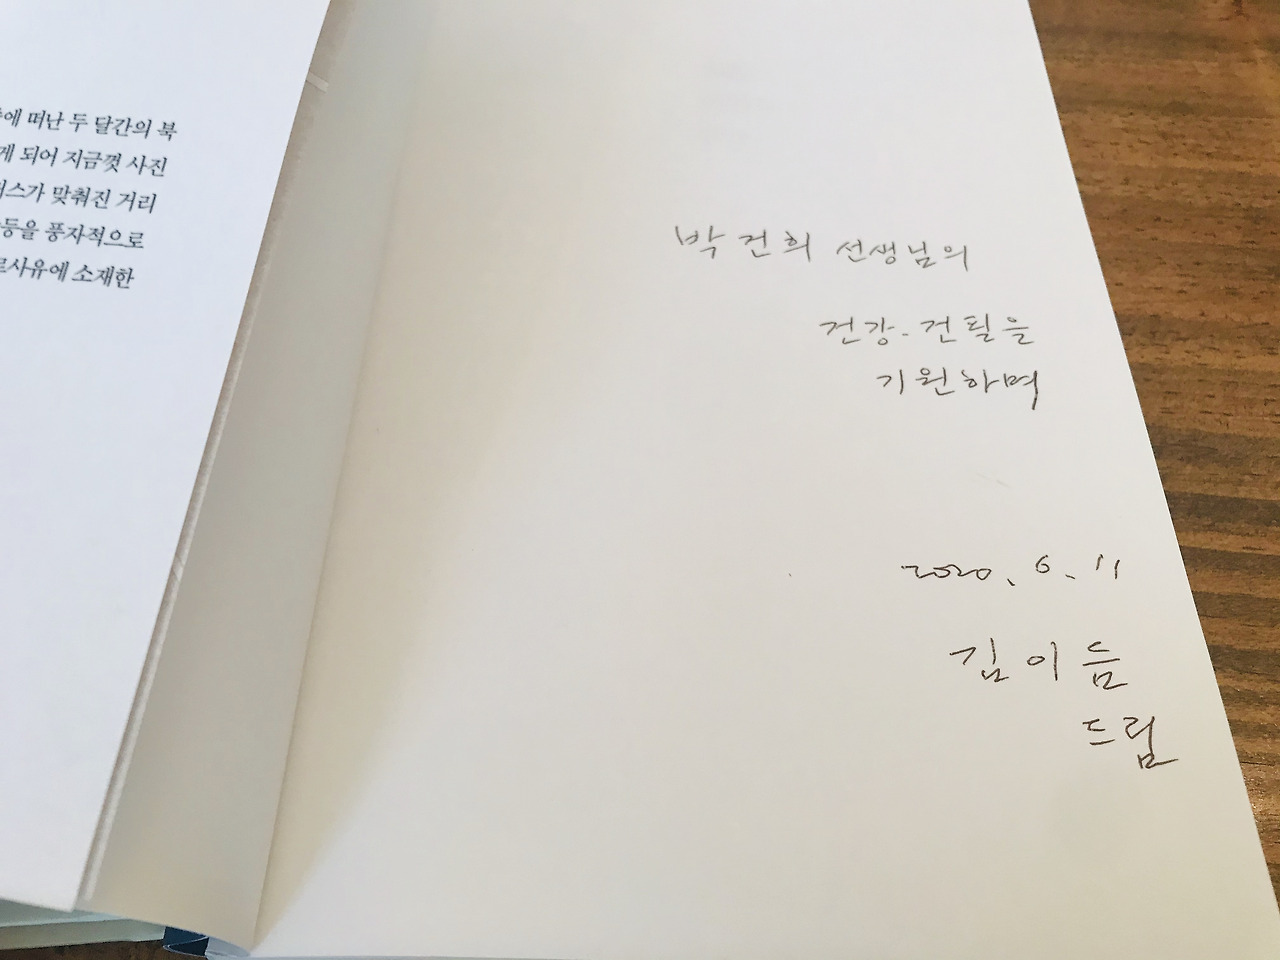 에 떠난 두 달간의 북
게 되어 지금껏 사진
커스가 맞춰진 거리
등을 풍자적으로
로사유에 소재한
박건희 선생님의
건강·건필을
기원하며
2020. 6. 11
김이듬
드림